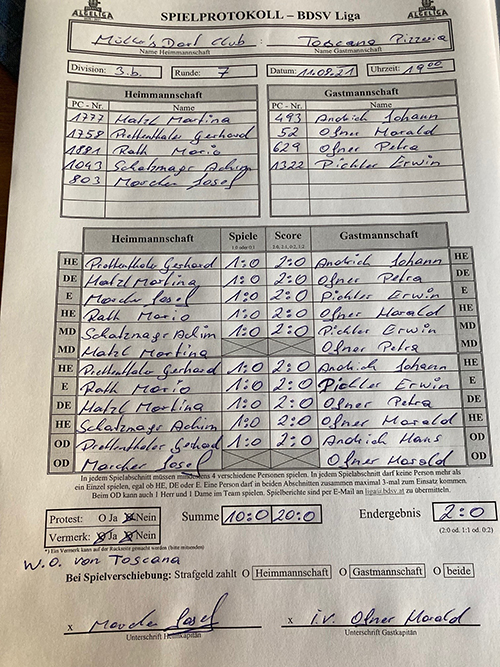 ALGELIGA SPIELPROTOKOLL – BDSV Liga ALGELIGA
Mülle's Dart Club : Toscana Pizzeria
Name Heimmannschaft Name Gastmannschaft
Division: 3.b. Runde: 7 Datum: 11.09.21 Uhrzeit: 19 00
Heimmannschaft Gastmannschaft
PC - Nr. Name PC - Nr. Name
1777 Hatzl Martina 493 Andrich Johann
1758 Prettenthaler Gerhard 52 Ofner Harald
1881 Rath Mario 629 Ofner Petra
1043 Schatzmayr Achim 1322 Pichler Erwin
803 Marcher Josef
Heimmannschaft Spiele Score Gastmannschaft
1:0 oder 0:1 2:0, 2:1, 0:2, 1:2
HE Prettenthaler Gerhard 1:0 2:0 Andrich Johann HE
DE Hatzl Martina 1:0 2:0 Ofner Petra DE
E Marcher Josef 1:0 2:0 Pichler Erwin E
HE Rath Mario 1:0 2:0 Ofner Harald HE
MD Schatzmayr Achim 1:0 2:0 Pichler Erwin MD
MD Hatzl Martina Ofner Petra MD
HE Prettenthaler Gerhard 1:0 2:0 Andrich Johann HE
E Rath Mario 1:0 2:0 Pichler Erwin E
DE Hatzl Martina 1:0 2:0 Ofner Petra DE
HE Schatzmayr Achim 1:0 2:0 Ofner Harald HE
OD Prettenthaler Gerhard 1:0 2:0 Andrich Hans OD
OD Marcher Josef Ofner Harald OD
In jedem Spielabschnitt müssen mindestens 4 verschiedene Personen spielen. In jedem Spielabschnitt darf keine Person mehr als
ein Einzel spielen, egal ob HE, DE oder E. Eine Person darf in beiden Abschnitten zusammen maximal 3-mal zum Einsatz kommen.
Beim OD kann auch 1 Herr und 1 Dame im Team spielen. Spielberichte sind per E-Mail an liga@bdsv.at zu übermitteln.
Protest: O Ja O Nein Summe 10:0 20:0 Endergebnis 2:0
Vermerk: O Ja O Nein (2:0 od. 1:1 od. 0:2)
*) Ein Vermerk kann auf der Rückseite gemacht werden (bitte mitsenden)
W.O. von Toscana
Bei Spielverschiebung: Strafgeld zahlt O Heimmannschaft O Gastmannschaft O beide
x Marcher Josef x i.V. Ofner Harald
Unterschrift Heimkapitän Unterschrift Gastkapitän